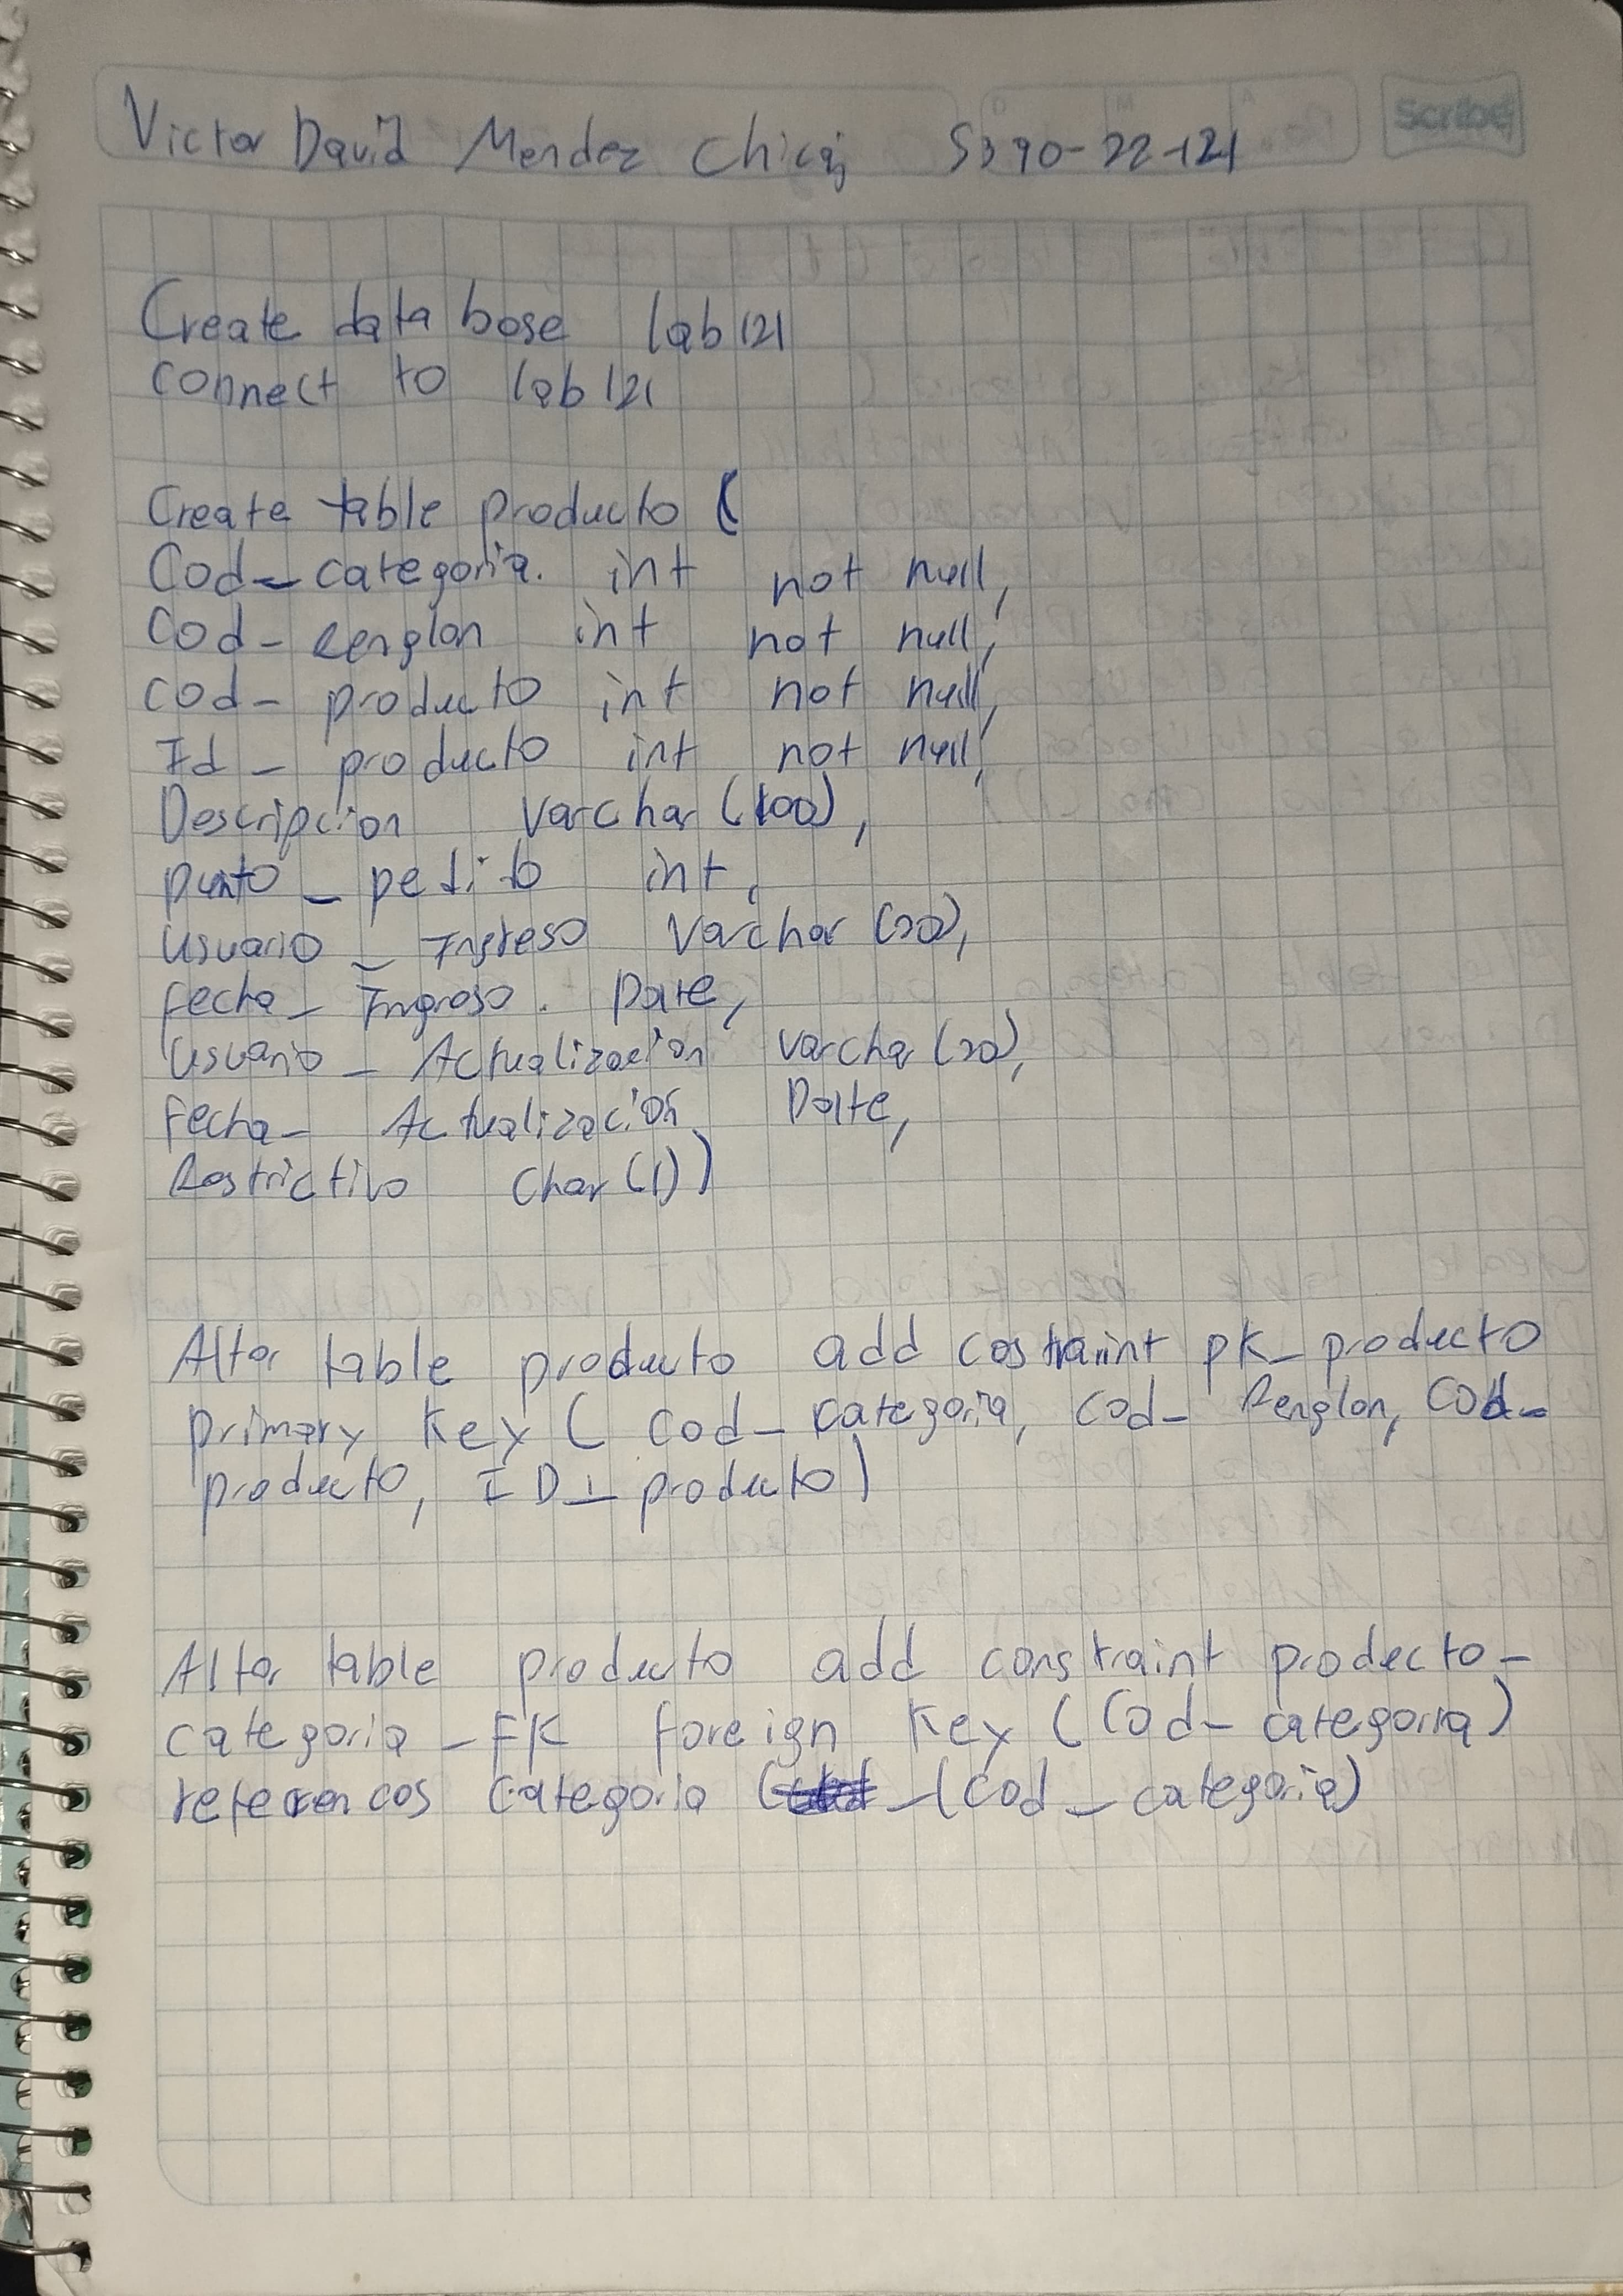 Victor David Mendez Chicaj 5390-22-121
Scribe
Create data base lab121
connect to lab121
Create table producto (
Cod_categoria. int not null,
Cod_Renglon int not null,
cod_producto int not null,
Id_producto int not null,
Descripcion varchar(100),
punto_pedido int,
usuario_Ingreso varchar(20),
fecha_Ingreso. Date,
usuario_Actualizacion varchar(20),
fecha_Actualización Date,
Restrictivo char(1))
Alter table producto add costraint pk_producto
primary key (cod_categoria, cod_Renglon, cod_
producto, ID_producto)
Alter table producto add constraint producto_
categoria_FK foreign key (Cod_categoria)
references categoria (cod_categoria)